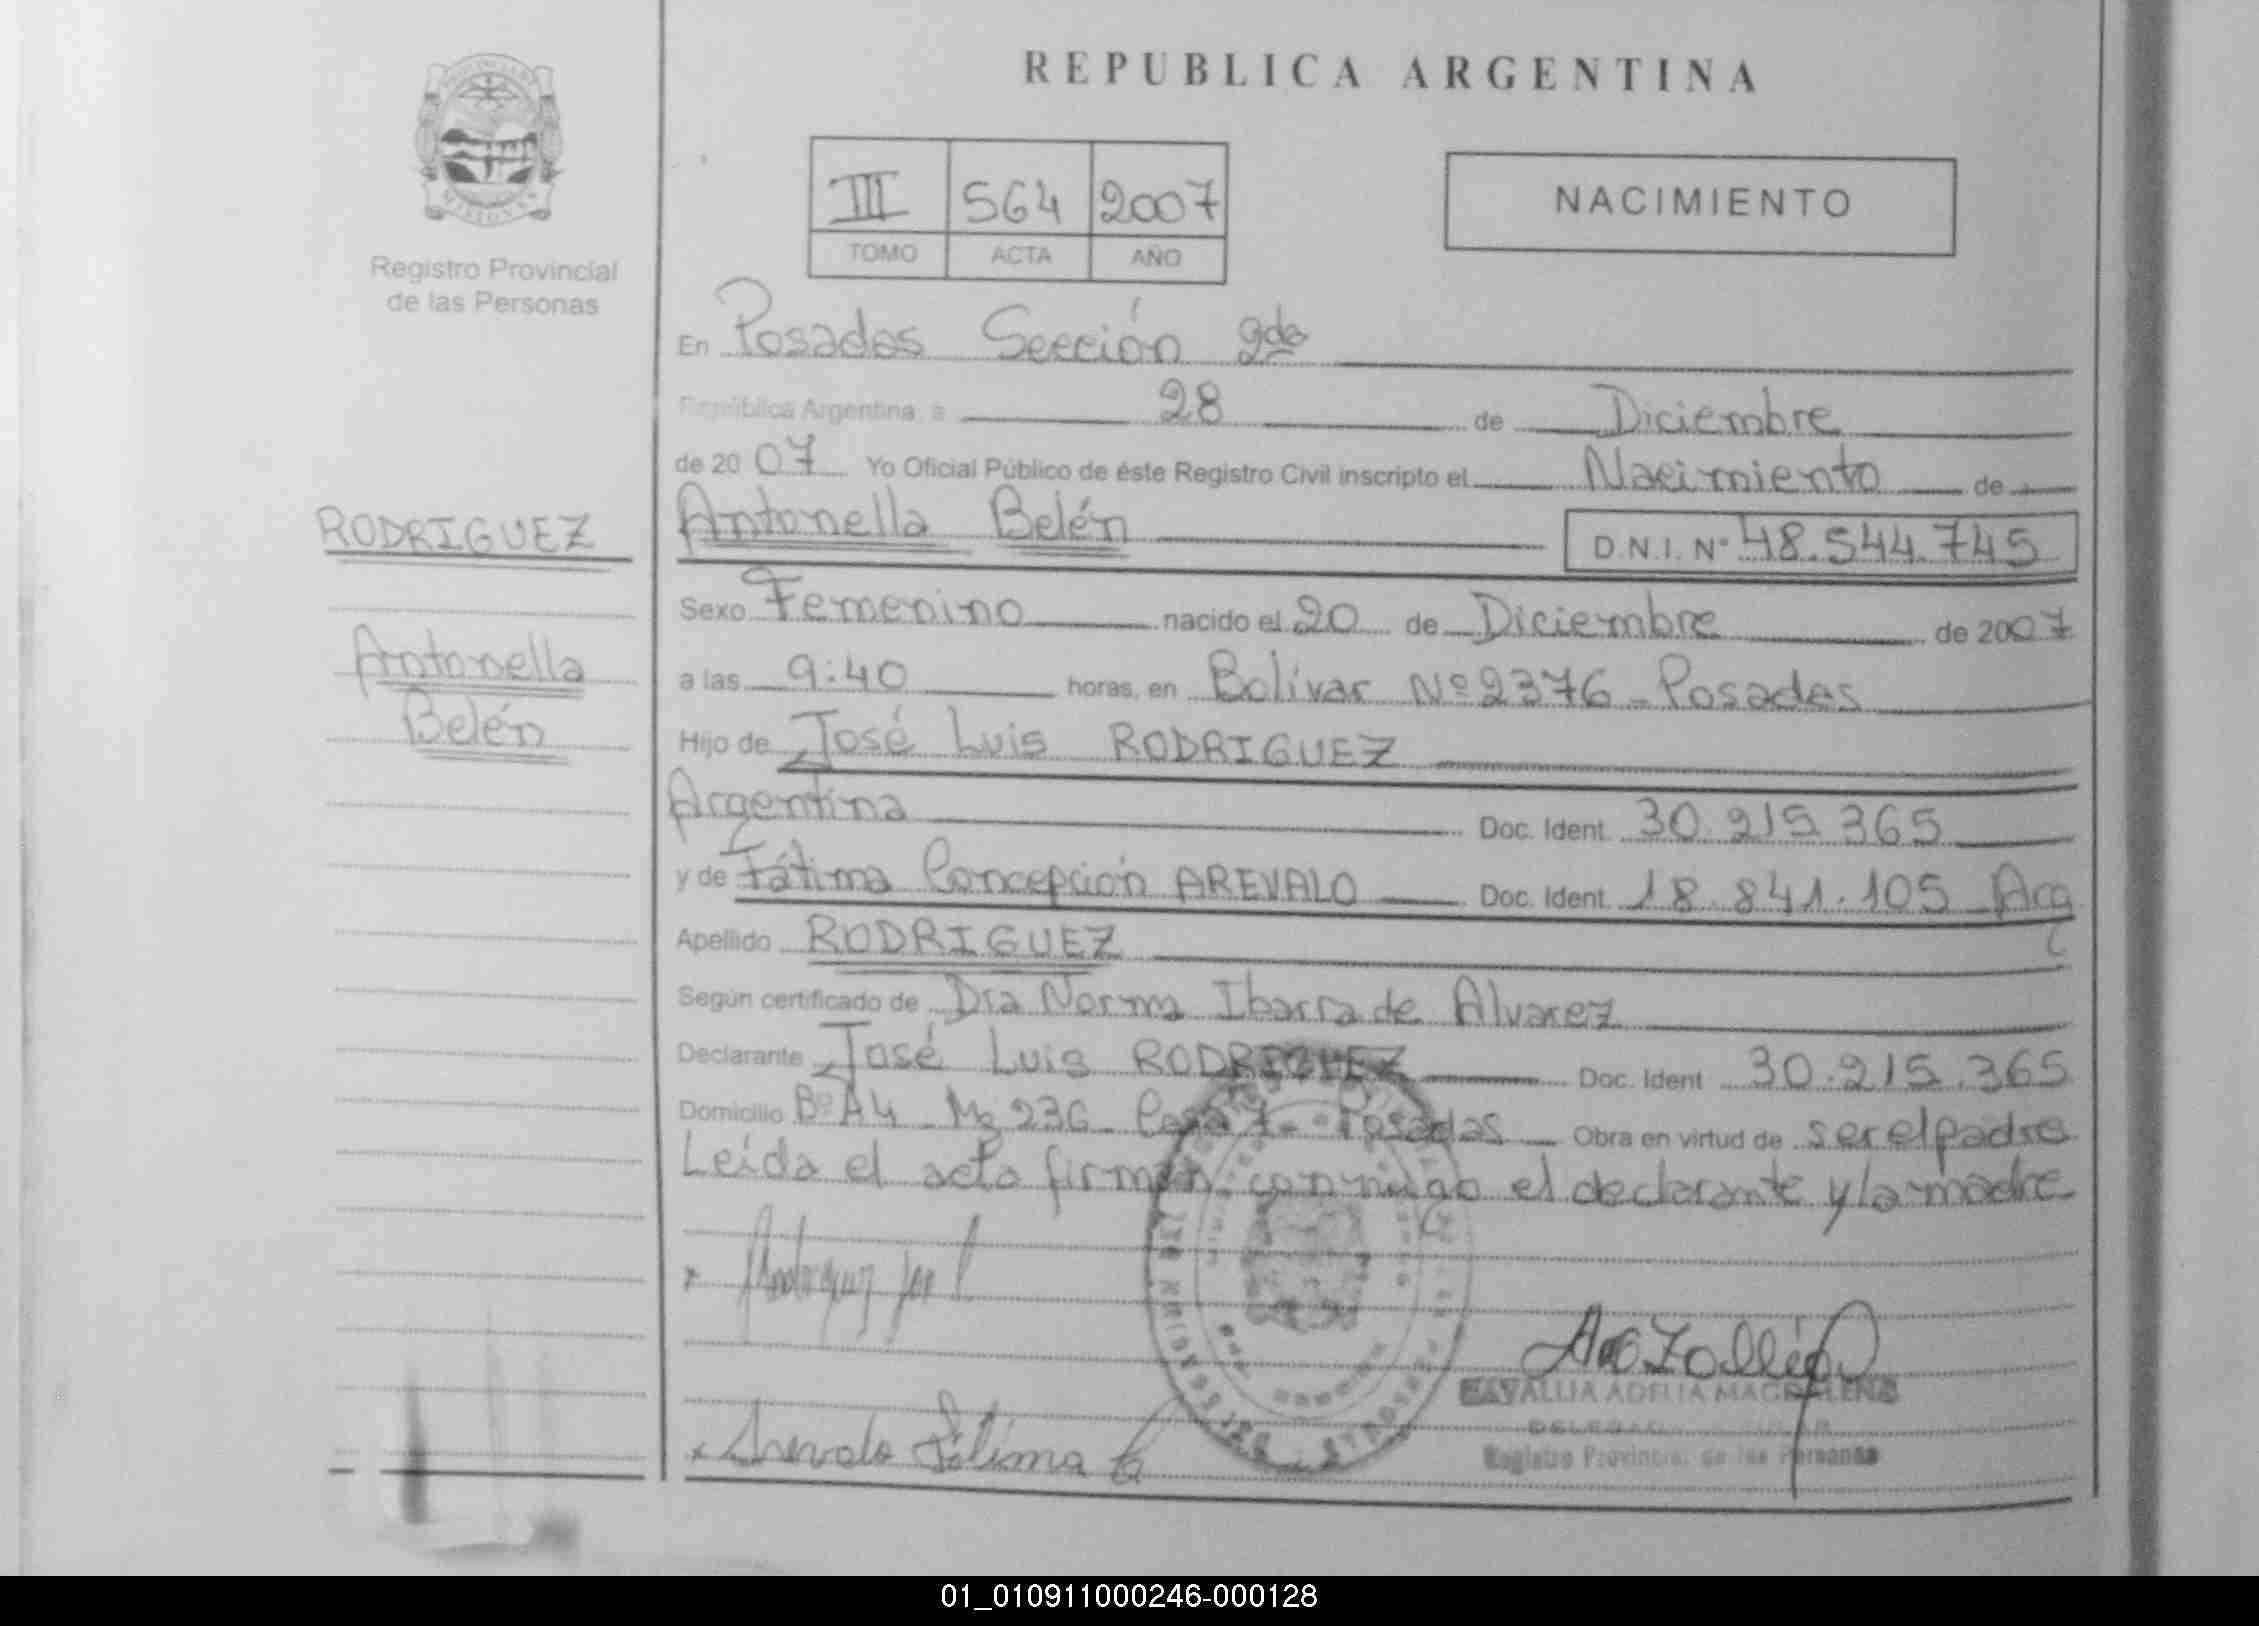 REPUBLICA ARGENTINA
PROVINCIA DE
MISIONES
Registro Provincial
de las Personas
III 564 2007
TOMO ACTA AÑO
NACIMIENTO
En Posadas Sección 2da
República Argentina, a 28 de Diciembre
de 2007 Yo Oficial Público de éste Registro Civil inscripto el Nacimiento de
RODRIGUEZ
Antonella Belén
Antonella Belén D.N.I. Nº 48.544.745
Sexo Femenino nacido el 20 de Diciembre de 2007
a las 9:40 horas, en Bolívar Nº 2376 - Posadas
Hijo de José Luis RODRIGUEZ
Argentina Doc. Ident. 30.215.365
y de Fátima Concepción AREVALO Doc. Ident. 18.841.105 Arg
Apellido RODRIGUEZ
Según certificado de Dra Norma Ibarra de Alvarez
Declarante José Luis RODRIGUEZ Doc. Ident. 30.215.365
Domicilio Bº A4 - Mz 236 - Casa 7 - Posadas Obra en virtud de ser el padre
Leída el acta firman conmigo el declarante y la madre
x Rodriguez José L
x Arevalo Fátima C
ADELIA MAGDALENA
Registro Provincial de las Personas
01_010911000246-000128